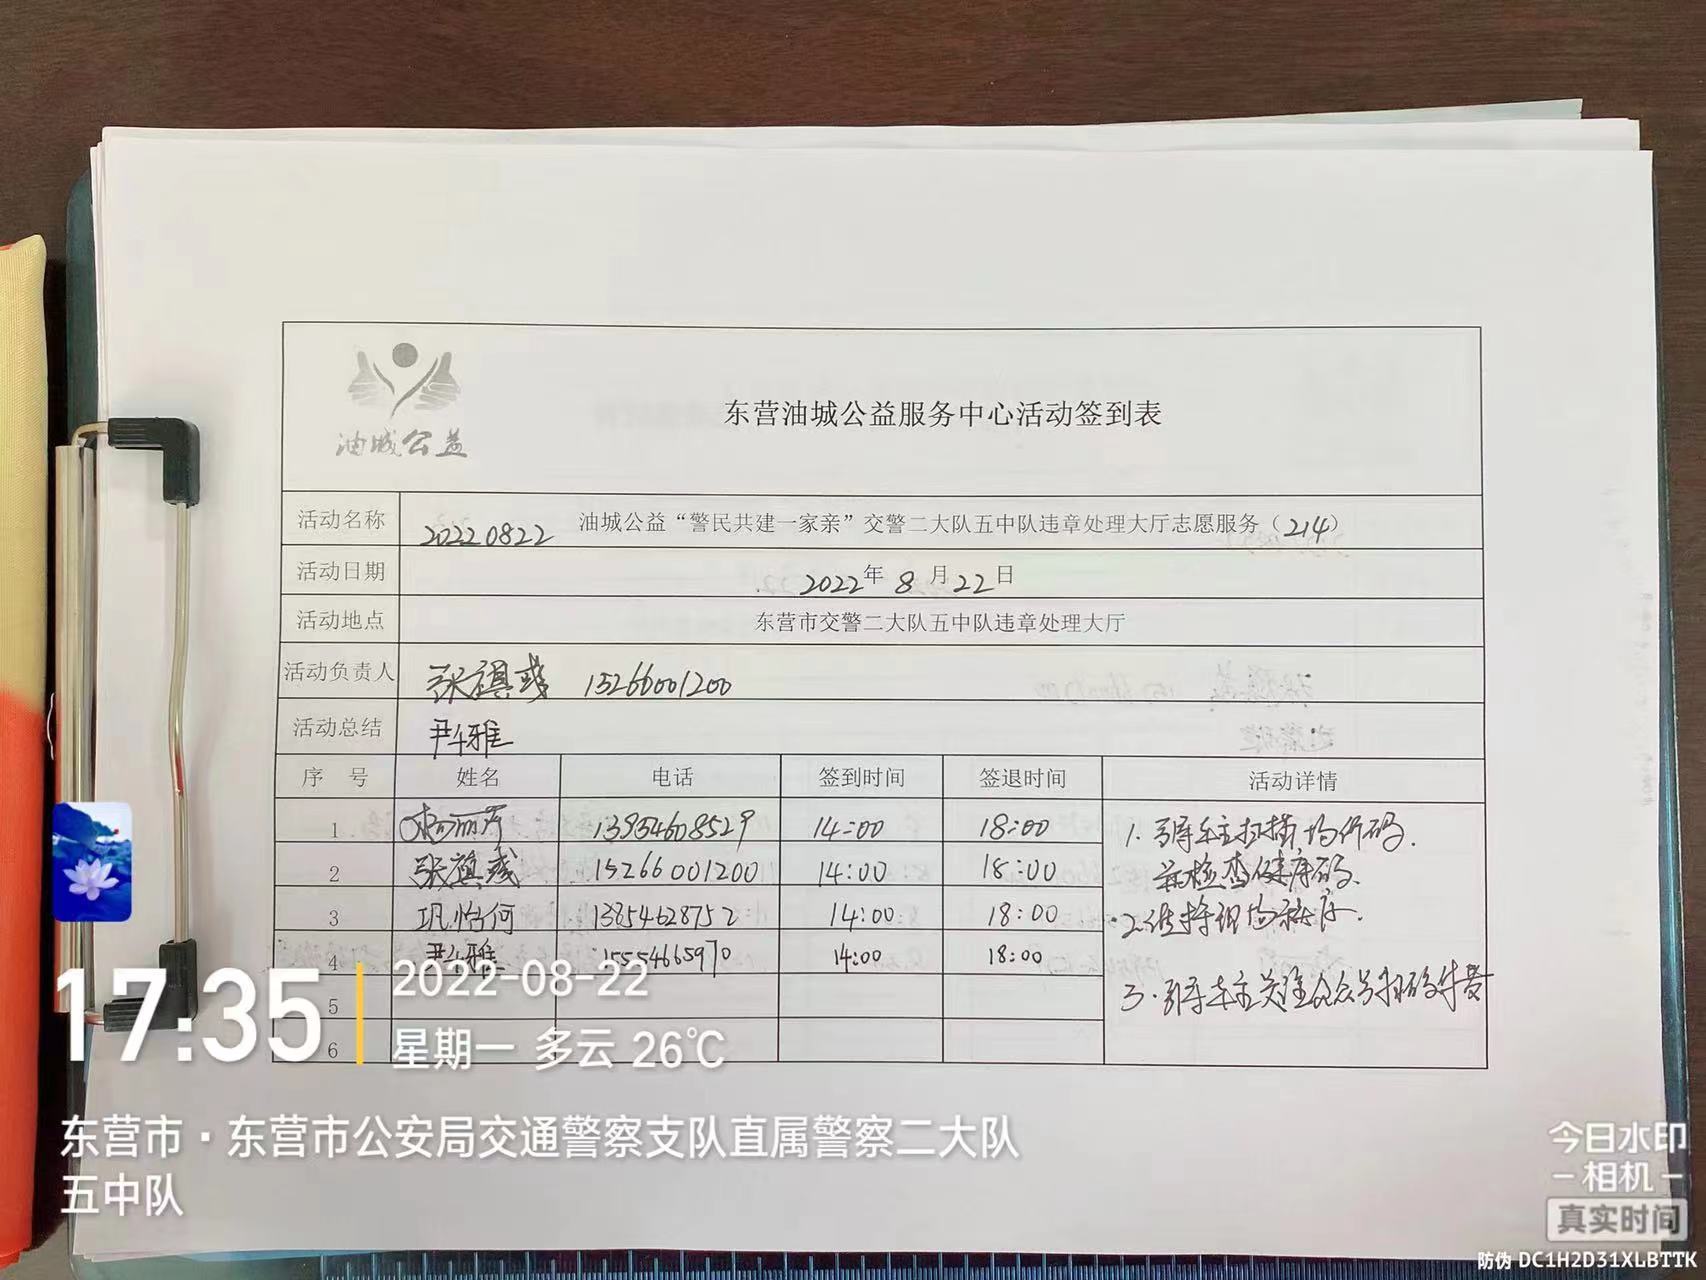 油城公益
东营油城公益服务中心活动签到表
活动名称 20220822 油城公益“警民共建一家亲”交警二大队五中队违章处理大厅志愿服务（214）
活动日期 2022年 8 月 22 日
活动地点 东营市交警二大队五中队违章处理大厅
活动负责人 张祺彧 15266001200
活动总结 尹雅
序 号 姓名 电话 签到时间 签退时间 活动详情
1 杨丽芹 13954608529 14:00 18:00 1. 引导车主扫描场所码.
2 张祺彧 15266001200 14:00 18:00 并检查健康码.
3 巩怡何 13854628752 14:00 18:00 2.维持现场秩序.
4 尹雅 15554665970 14:00 18:00
3.引导车主关注公众号扫码缴费
5
6
17:35
2022-08-22
星期一 多云 26℃
东营市·东营市公安局交通警察支队直属警察二大队
五中队
今日水印
相机
真实时间
防伪 DC1H2D31XLBTTK